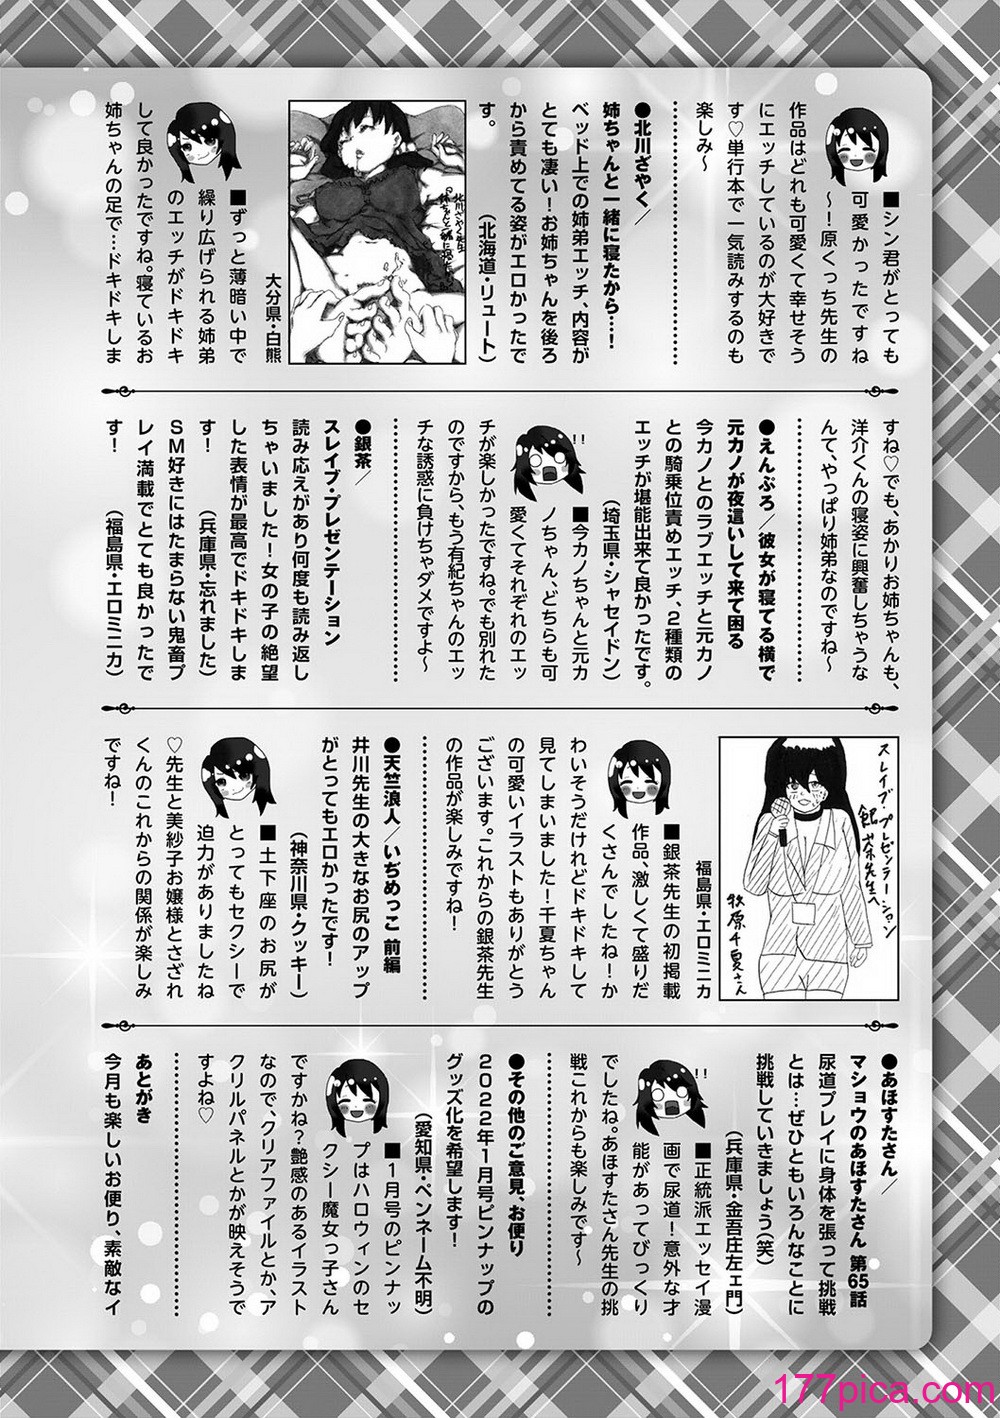 ■シン君がとっても
可愛かったですね
～！原くっち先生の
作品はどれも可愛くて幸せそう
にエッチしているのが大好きで
す♡単行本で一気読みするのも
楽しみ～
●北川ざやく／
姉ちゃんと一緒に寝たから…！
ベッド上での姉弟エッチ、内容が
とても凄い！お姉ちゃんを後ろ
から責めてる姿がエロかったで
す。
（北海道・リュート）
大分県・白熊
■ずっと薄暗い中で
繰り広げられる姉弟
のエッチがドキドキ
して良かったですね。寝ているお
姉ちゃんの足で…ドキドキしま
すね♡でも、あかりお姉ちゃんも、
洋介くんの寝姿に興奮しちゃうな
んて、やっぱり姉弟なのですね～
●えんぶろ／彼女が寝てる横で
元カノが夜這いして来て困る
今カノとのラブエッチと元カノ
との騎乗位責めエッチ、2種類の
エッチが堪能出来て良かったです。
（埼玉県・シャセイドン）
!!
■今カノちゃんと元カ
ノちゃん、どちらも可
愛くてそれぞれのエッ
チが楽しかったですね。でも別れた
のですから、もう有紀ちゃんのエッ
チな誘惑に負けちゃダメですよ～
●銀茶／
スレイブ・プレゼンテーション
読み応えがあり何度も読み返し
ちゃいました！女の子の絶望
した表情が最高でドキドキしま
す！
（兵庫県・忘れました）
SM好きにはたまらない鬼畜プ
レイ満載でとても良かったで
す！
（福島県・エロミニカ）
スレイブ プレゼンテーション
銀茶先生へ
牧原千夏さん
福島県・エロミニカ
■銀茶先生の初掲載
作品、激しくて盛りだ
くさんでしたね！か
わいそうだけれどドキドキして
見てしまいました！千夏ちゃん
の可愛いイラストもありがとう
ございます。これからの銀茶先生
の作品が楽しみですね！
●天竺浪人／いぢめっこ 前編
井川先生の大きなお尻のアップ
がとってもエロかったです！
（神奈川県・クッキー）
■土下座のお尻が
とってもセクシーで
迫力がありましたね
♡先生と美紗子お嬢様とさざれ
くんのこれからの関係が楽しみ
ですね！
●あほすたさん／
マショウのあほすたさん 第65話
尿道プレイに身体を張って挑戦
とは…ぜひともいろんなことに
挑戦していきましょう（笑）
（兵庫県・金吾庄左ェ門）
!!
■正統派エッセイ漫
画で尿道！意外な才
能があってびっくり
でしたね。あほすたさん先生の挑
戦これからも楽しみです～
●その他のご意見、お便り
2022年1月号ピンナップの
グッズ化を希望します！
（愛知県・ペンネーム不明）
■1月号のピンナッ
プはハロウィンのセ
クシー魔女っ子さん
ですかね？艶感のあるイラスト
なので、クリアファイルとか、ア
クリルパネルとかが映えそうで
すよね♡
あとがき
今月も楽しいお便り、素敵なイ
177pica.com